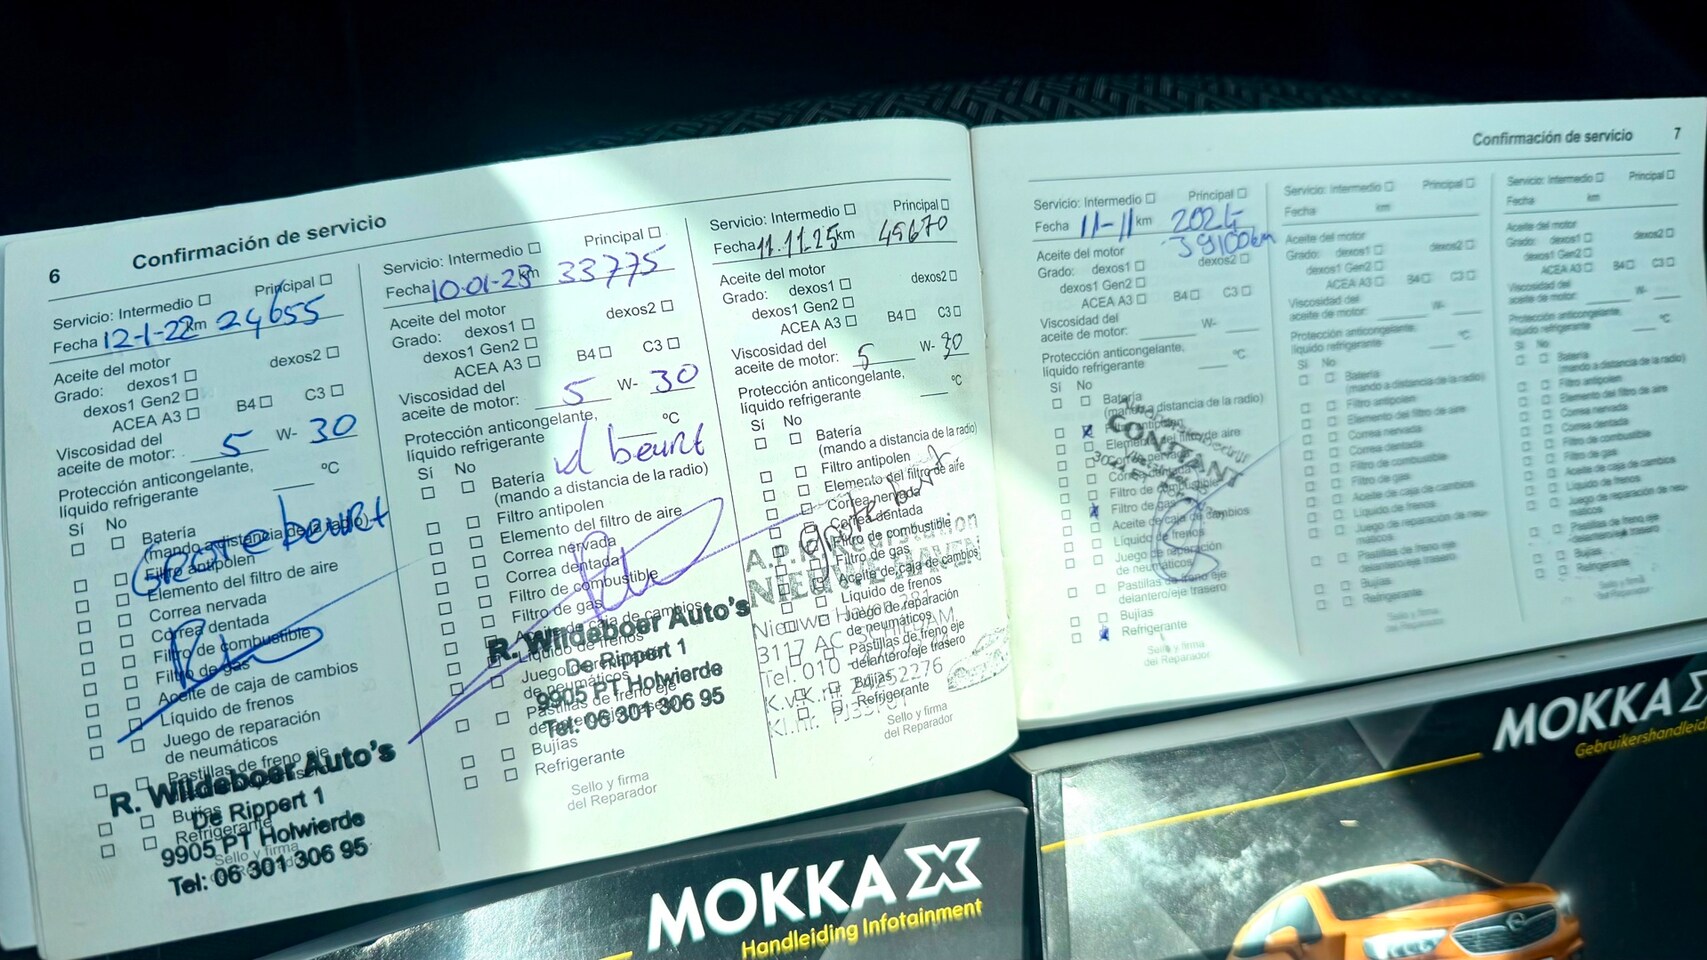 6
Confirmación de servicio
Servicio: Intermedio Principal
Fecha 12-1-22 km 24655
Aceite del motor
Grado: dexos1 dexos2
dexos1 Gen2
ACEA A3 B4 C3
Viscosidad del
aceite de motor: 5 W- 30
Protección anticongelante,
líquido refrigerante °C
Sí No
Grote beurt
Batería
(mando a distancia de la radio)
Filtro antipolen
Elemento del filtro de aire
Correa nervada
Correa dentada
Filtro de combustible
Filtro de gas
Aceite de caja de cambios
Líquido de frenos
Juego de reparación
de neumáticos
Pastillas de freno eje
Bujías
Refrigerante
Sello y firma
R. Wildeboer Auto's
De Rippert 1
9905 PT Holwierde
Tel: 06 301 306 95
Servicio: Intermedio Principal
Fecha 10-01-23 km 33775
Aceite del motor
Grado: dexos1 dexos2
dexos1 Gen2
ACEA A3 B4 C3
Viscosidad del
aceite de motor: 5 W- 30
Protección anticongelante,
líquido refrigerante °C
Sí No
beurt
Batería
(mando a distancia de la radio)
Filtro antipolen
Elemento del filtro de aire
Correa nervada
Correa dentada
Filtro de combustible
Filtro de gas
Aceite de caja de cambios
Líquido de frenos
Juego de reparación
de neumáticos
Pastillas de freno eje
Bujías
Refrigerante
Sello y firma
del Reparador
R. Wildeboer Auto's
De Rippert 1
9905 PT Holwierde
Tel: 06 301 306 95
Servicio: Intermedio Principal
Fecha 11.11.25 km 49670
Aceite del motor
Grado: dexos1 dexos2
dexos1 Gen2
ACEA A3 B4 C3
Viscosidad del
aceite de motor: 5 W- 30
Protección anticongelante,
líquido refrigerante °C
Sí No
Batería
(mando a distancia de la radio)
Filtro antipolen
Elemento del filtro de aire
Correa nervada
Correa dentada
Filtro de combustible
Filtro de gas
Aceite de caja de cambios
Líquido de frenos
Juego de reparación
de neumáticos
Pastillas de freno eje
delantero/eje trasero
Bujías
Refrigerante
Sello y firma
del Reparador
A.P.K. Keurstation
NIEUWE HAVEN
3117 AC SCHIEDAM
Tel. 010
K.v.K.nr. 24252276
Confirmación de servicio
7
Servicio: Intermedio Principal
Fecha 11-11 km 2024
39100km
Aceite del motor
Grado: dexos1 dexos2
dexos1 Gen2
ACEA A3 B4 C3
Viscosidad del
aceite de motor: W-
Protección anticongelante,
líquido refrigerante °C
Sí No
Batería
(mando a distancia de la radio)
Filtro de combustible
Filtro de gas
Aceite de caja de cambios
Líquido de frenos
Juego de reparación
de neumáticos
Pastillas de freno eje
delantero/eje trasero
Bujías
Refrigerante
Sello y firma
del Reparador
Servicio: Intermedio Principal
Fecha km
Aceite del motor
Grado: dexos1 dexos2
dexos1 Gen2
ACEA A3 B4 C3
Viscosidad del
aceite de motor: W-
Protección anticongelante,
líquido refrigerante °C
Sí No
Batería
(mando a distancia de la radio)
Filtro antipolen
Elemento del filtro de aire
Correa nervada
Correa dentada
Filtro de combustible
Filtro de gas
Aceite de caja de cambios
Líquido de frenos
Juego de reparación de neu-
máticos
Pastillas de freno eje
delantero/eje trasero
Bujías
Refrigerante
Sello y firma
del Reparador
Servicio: Intermedio Principal
Fecha km
Aceite del motor
Grado: dexos1 dexos2
dexos1 Gen2
ACEA A3 B4 C3
Viscosidad del
aceite de motor: W-
Protección anticongelante,
líquido refrigerante °C
Sí No
Batería
(mando a distancia de la radio)
Filtro antipolen
Elemento del filtro de aire
Correa nervada
Correa dentada
Filtro de combustible
Filtro de gas
Aceite de caja de cambios
Líquido de frenos
Juego de reparación de neu-
máticos
Pastillas de freno eje
delantero/eje trasero
Bujías
Refrigerante
Sello y firma
del Reparador
MOKKA X
Handleiding Infotainment
MOKKA X
Gebruikershandleid